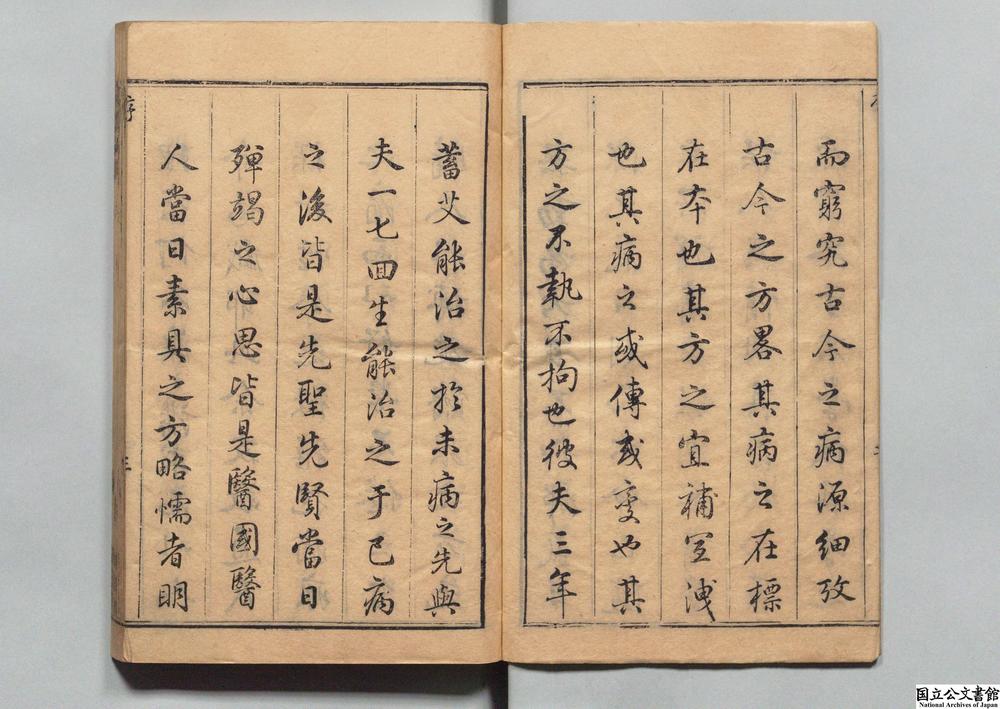 而窮究古今之病源細攷
古今之方畧其病之在標
在本也其方之宜補宜洩
也其病之或傳或变也其
方之不執不拘也彼夫三年
蓄艾能治之於未病之先與
夫一七回生能治之于已病
之後皆是先聖先賢當日
殫竭之心思皆是醫國醫
人當日素具之方略懦者明
序
国立公文書館
National Archives of Japan